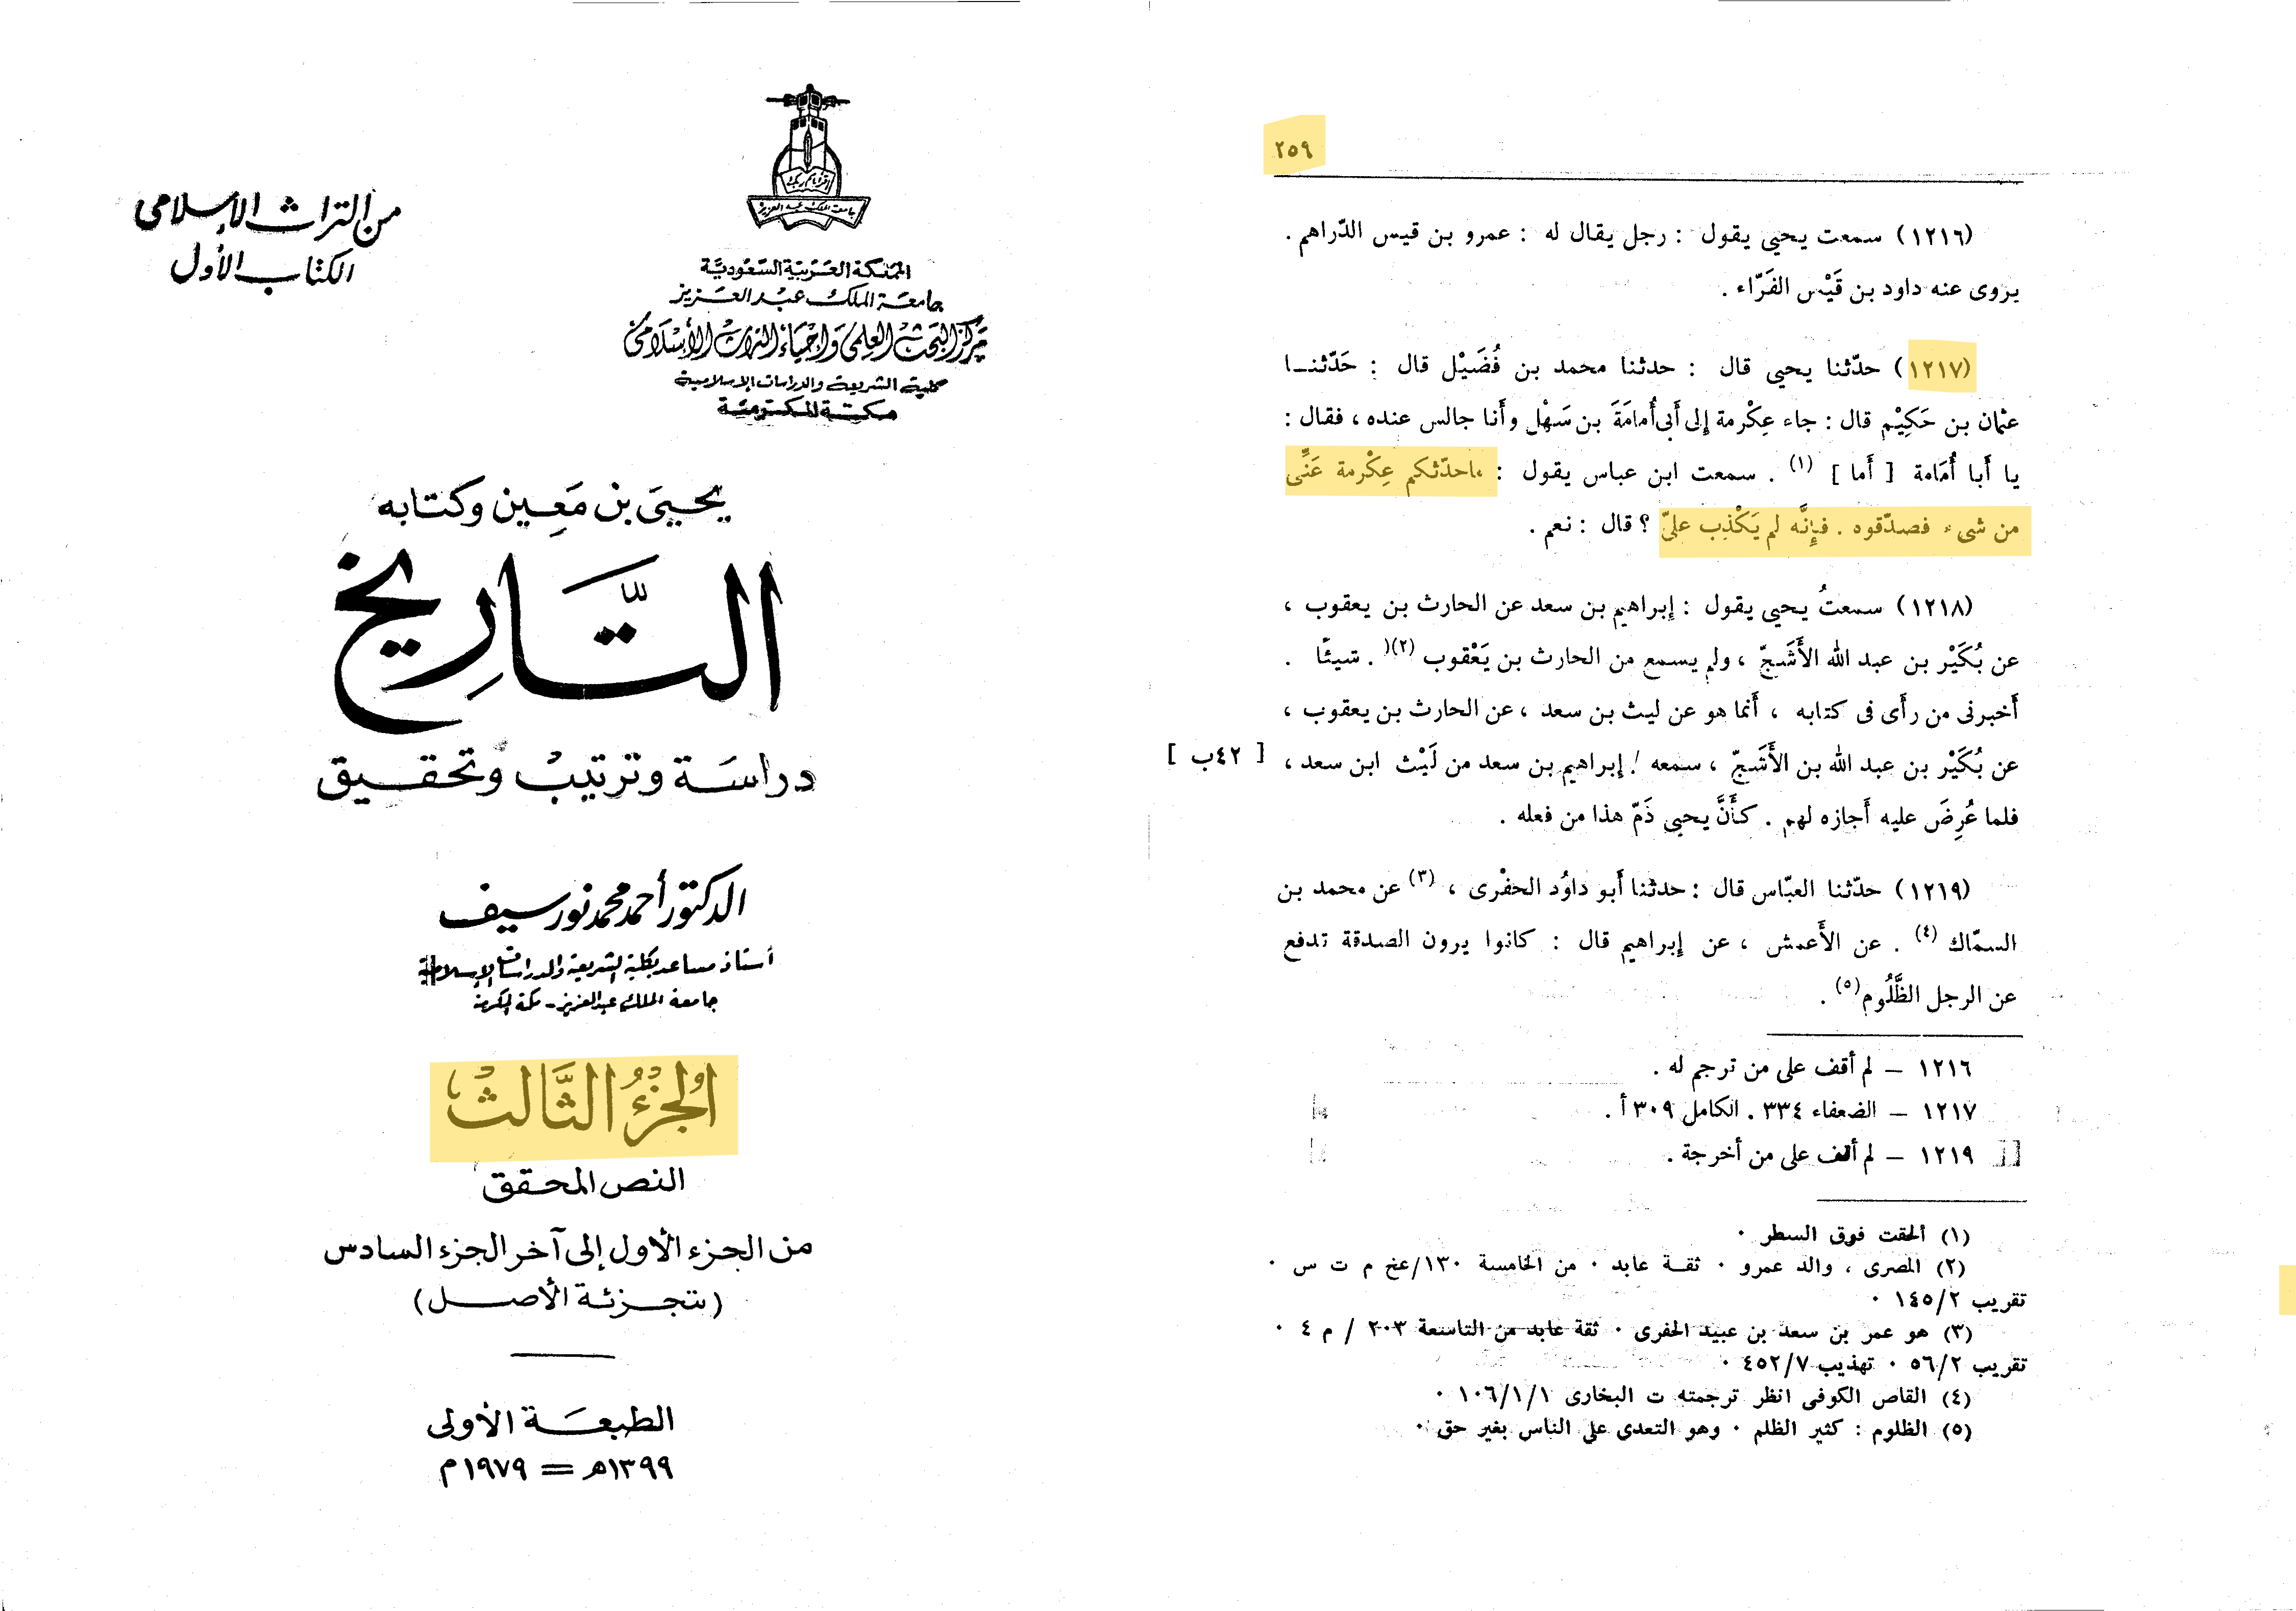 من التراث الإسلامى
الكتاب الأول
اقرأ باسم ربك
جامعة الملك عبد العزيز
المملكة العربية السعودية
جامعة الملك عبد العزيز
مركز البحث العلمى وإحياء التراث الإسلامى
كلية الشريعة والدراسات الإسلامية
مكة المكرمة
يحيى بن معين وكتابه
التاريخ
دراسة وترتيب وتحقيق
الدكتور أحمد محمد نور سيف
أستاذ مساعد بكلية الشريعة والدراسات الإسلامية
جامعة الملك عبد العزيز - مكة المكرمة
الجزء الثالث
النص المحقق
من الجزء الأول إلى آخر الجزء السادس
( بتجزئة الأصل )
الطبعة الأولى
١٣٩٩هـ = ١٩٧٩م
٢٥٩
(١٢١٦) سمعت يحيى يقول : رجل يقال له : عمرو بن قيس الدّراهم .
يروى عنه داود بن قَيْس الفَرّاء .
(١٢١٧) حدّثنا يحيى قال : حدثنا محمد بن فُضَيْل قال : حَدّثنـا
عثمان بن حَكِيْم قال : جاء عِكْرمة إلى أَبى أُمامَةَ بن سَهْل وأَنا جالس عنده ، فقال :
يا أَبا أُمَامة [ أَما ] (١) . سمعت ابن عباس يقول : ماحدّثكم عِكْرمة عَنِّى
من شىء فصدّقوه . فإِنَّه لم يَكْذِب علىّ ؟ قال : نعم .
(١٢١٨) سمعتُ يحيى يقول : إبراهيم بن سعد عن الحارث بن يعقوب ،
عن بُكَيْر بن عبد الله الأَشَجّ ، ولم يسمع من الحارث بن يَعْقوب (٢)( . شيئًا .
أَخبرنى من رأَى فى كتابه ، أَنما هو عن ليث بن سعد ، عن الحارث بن يعقوب ،
عن بُكَيْر بن عبد الله بن الأَشَجّ ، سمعه / إبراهيم بن سعد من لَيْث ابن سعد ، [ ٤٢ب ]
فلما عُرِضَ عليه أَجازه لهم . كأَنَّ يحيى ذَمّ هذا من فعله .
(١٢١٩) حدّثنا العبّاس قال : حدثنا أَبو داوُد الحفْرى ، (٣) عن محمد بن
السمّاك (٤) . عن الأَعمش ، عن إبراهيم قال : كانوا يرون الصدقة تدفع
عن الرجل الظَّلُوم (٥) .
١٢١٦ – لم أقف على من ترجم له .
١٢١٧ – الضعفاء ٣٣٤ . الكامل ٣٠٩ أ .
١٢١٩ – لم أقف على من أخرجة .
(١) ألحقت فوق السطر ٠
(٢) المصرى ، والد عمرو ٠ ثقـة عابد ٠ من الخامسة ١٣٠/عخ م ت س ٠
تقريب ١٤٥/٢ ٠
(٣) هو عمر بن سعد بن عبيد الحفرى ٠ ثقة عابد من التاسعة ٢٠٣ / م ٤ ٠
تقريب ٥٦/٢ ٠ تهذيب ٤٥٢/٧ ٠
(٤) القاص الكوفى انظر ترجمته ت البخارى ١٠٦/١/١ ٠
(٥) الظلوم : كثير الظلم ٠ وهو التعدى على الناس بغير حق ٠